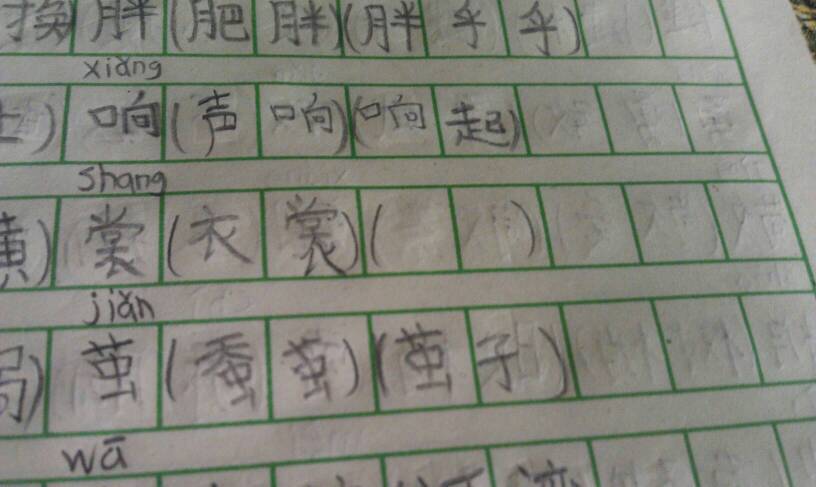 换 胖(肥胖)(胖乎乎)
xiǎng
) 响(声响)(响起)
shang
) 裳(衣裳)( )
jiǎn
) 茧(蚕茧)(茧子)
wā